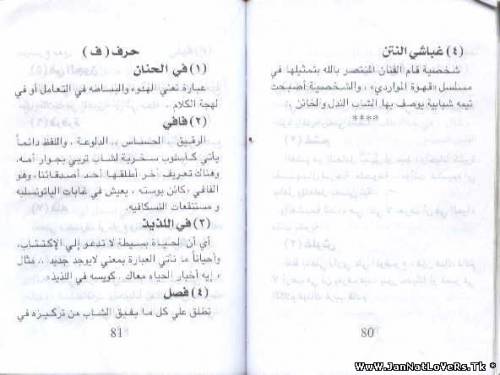 (٤) غباشي النتن
شخصية قام الفنان المنتصر بالله بتمثيلها في
مسلسل «قهوة المواردي»، والشخصية أصبحت
تيمه شبابية يوصف بها الشاب الندل والخائن .
****
80
حرف ( ف )
(١) في الحنان
عبارة تعني الهدوء والبساطه في التعامل أو في
لهجة الكلام .
(٢) فافي
الرقيق . الحساس .. الدلوعة .. واللفظ دائماً
يأتي كأسلوب سخرية لشاب تربي بجوار أمه.
وهناك تعريف آخر أطلقها أحد أصدقائنا، وهو
الفافي ,كائن بوسته , يعيش في غابات اليانوسليه
و مستنقعات النسكافيه.
(٣) في اللذيذ
أي أن الحياة بسيطة لا تدعو إلي الإكتئاب،
وأحياناً ما تأتي العبارة بمعني لايوجد جديد .. مثال
, إيه أخبار الحياه معاك. كويسه في اللذيذ».
(٤) فصل
تطلق علي كل ما يفيق الشاب من تركيزه في
81
WwW.JanNatLoVeRs.Tk *